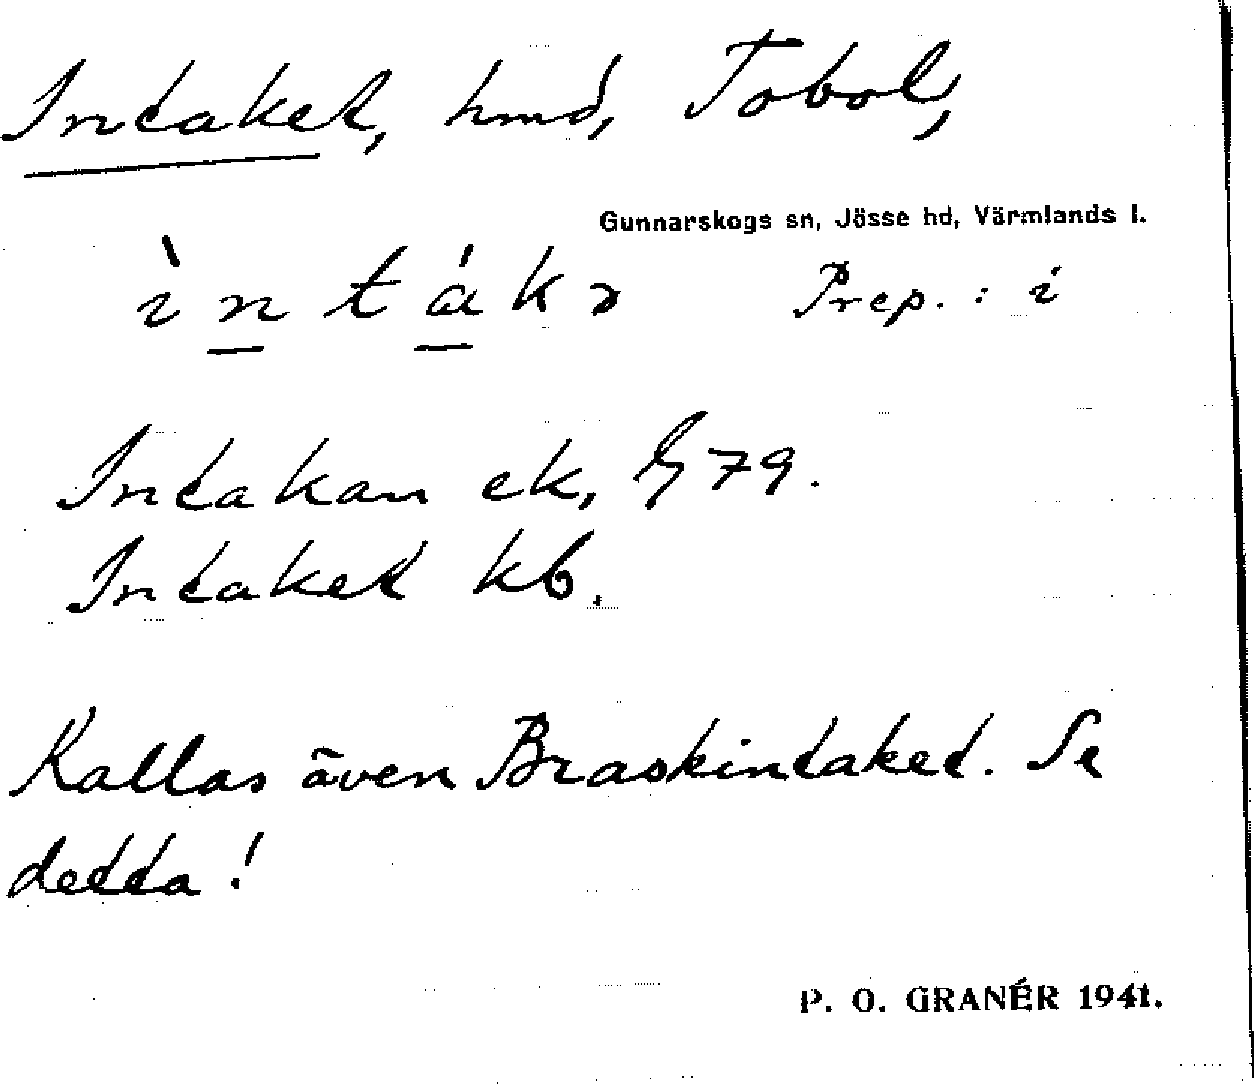 Intaket, hmd, Tobol,
Gunnarskogs sn, Jösse hd, Värmlands l.
ìntákə Prep. : i
Intakan ek, § 79.
Intaket kb.
Kallas även Braskintaket. Se
detta!
P. O. GRANÉR 1941.